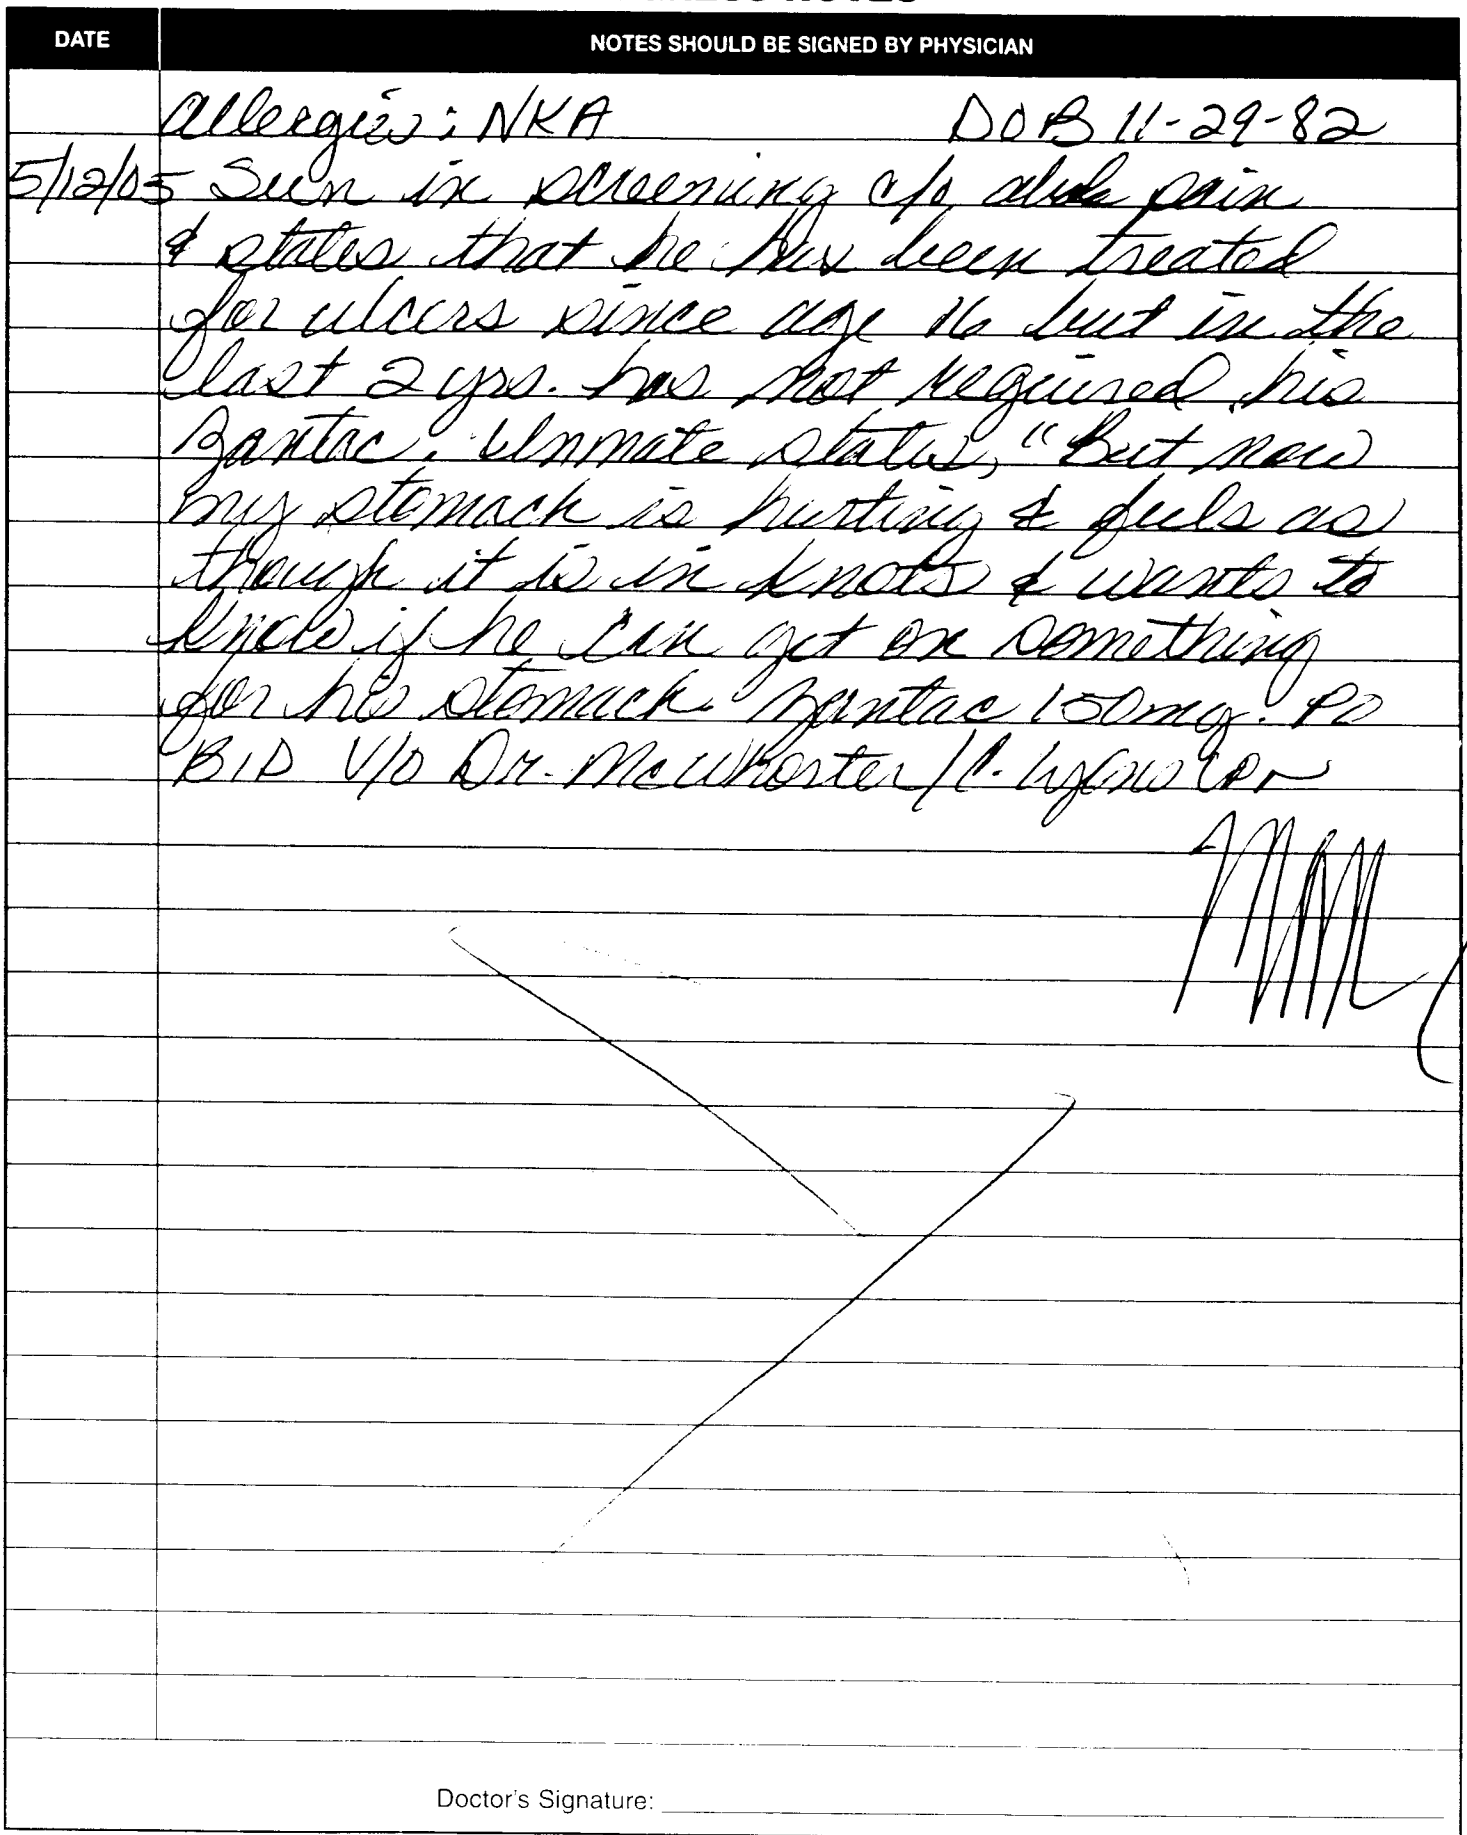 DATE NOTES SHOULD BE SIGNED BY PHYSICIAN
Allergies: NKA DOB 11-29-82
5/12/05 Seen in screening c/o abd pain
& states that he has been treated
for ulcers since age 16 but in the
last 2 yrs. has not required his
Zantac. Inmate states, "But now
my stomach is hurting & feels as
though it is in knots & wants to
know if he can get on something
for his stomach. Zantac 150mg. PO
BID V/O Dr. McWhorter/C. LPN
Doctor's Signature: